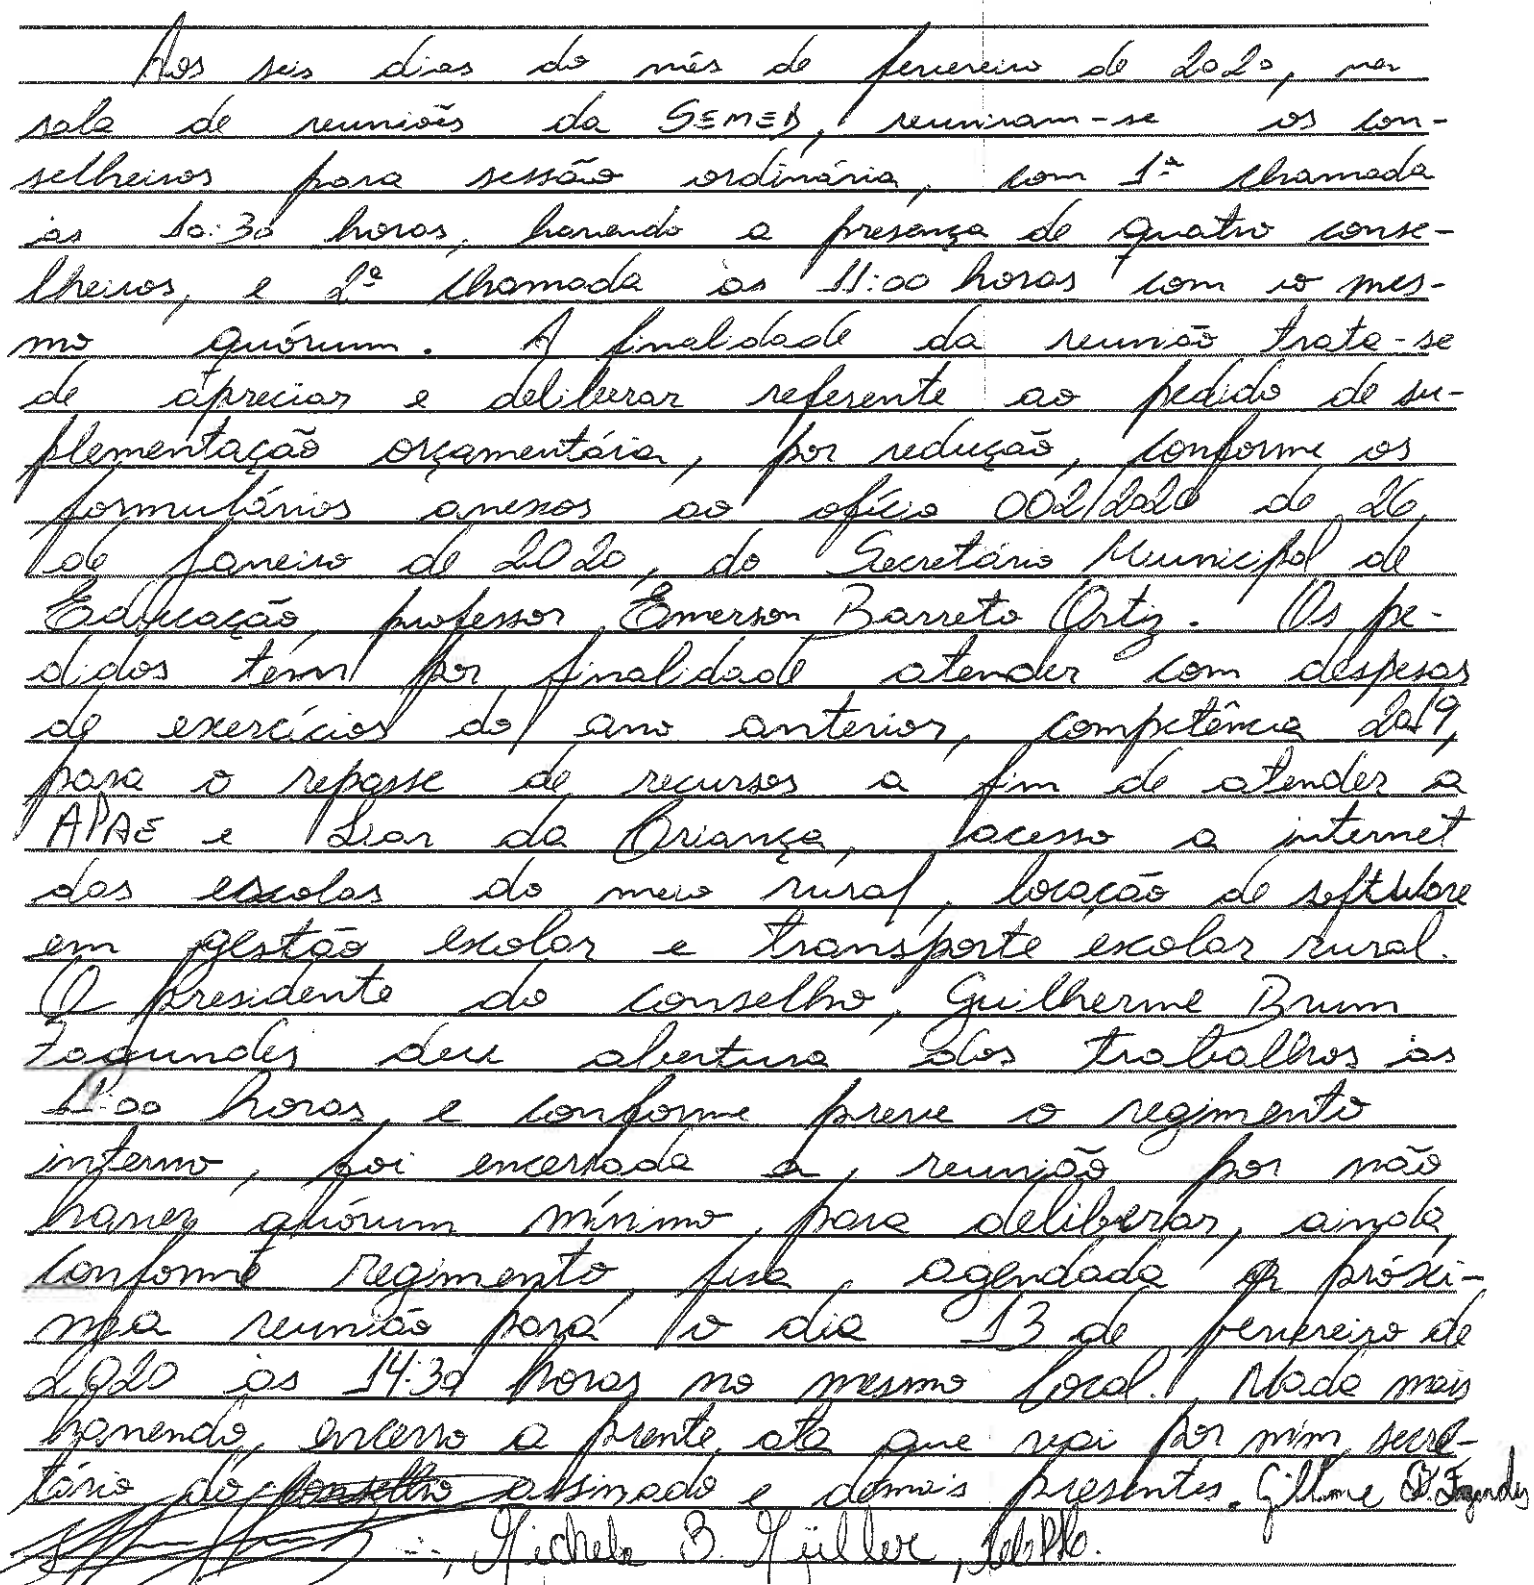 Aos seis dias do mês de fevereiro de 2020, na
sala de reuniões da SEMED, reuniram-se os con-
selheiros para sessão ordinária, com 1ª chamada
às 10:30 horas, havendo a presença de quatro conse-
lheiros, e 2ª chamada às 11:00 horas com o mes-
mo quórum. A finalidade da reunião trata-se
de apreciar e deliberar referente ao pedido de su-
plementação orçamentária, por redução, conforme os
formulários anexos ao ofício 002/2020 de 26
de Janeiro de 2020, do Secretário Municipal de
Educação, professor Emerson Barreto Ortiz. Os pe-
didos têm por finalidade atender com despesas
de exercícios do ano anterior, competência 2019,
para o repasse de recursos a fim de atender a
APAE e Lar da Criança, acesso a internet
das escolas do meio rural, locação de software
em gestão escolar e transporte escolar rural.
O presidente do conselho, Guilherme Brum
Fagundes deu abertura dos trabalhos às
11:00 horas, e conforme preve o regimento
interno, foi encerrada a reunião por não
haver quórum mínimo para deliberar, ainda,
conforme regimento, fica agendada a próxi-
ma reunião para o dia 13 de fevereiro de
2020 às 14:30 horas no mesmo local. Nada mais
havendo, encerro a prente ata que vai por mim, secre-
tário do conselho assinado e demais presentes. Guilherme B. Fagundes
, Michele B. Müller,